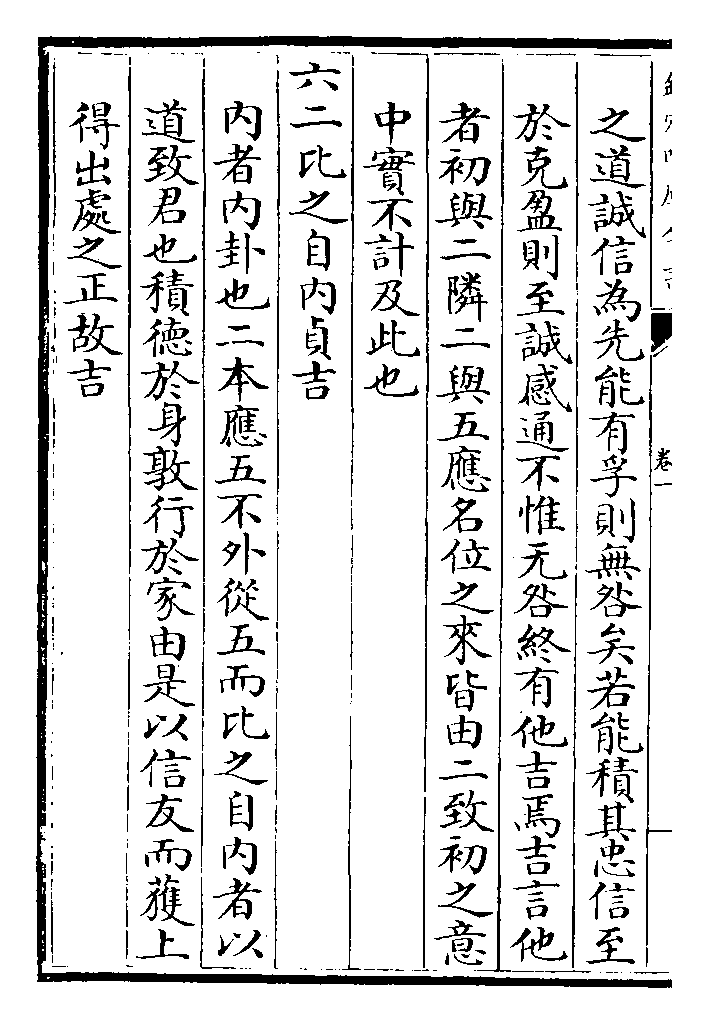 之道誠信為先能有孚則無咎矣若能積其忠信至
於克盈則至誠感通不惟无咎終有他吉焉吉言他
者初與二隣二與五應名位之來皆由二致初之意
中實不計及此也
六二比之自内貞吉
内者内卦也二本應五不外從五而比之自内者以
道致君也積德於身敦行於家由是以信友而獲上
得出處之正故吉
卷一